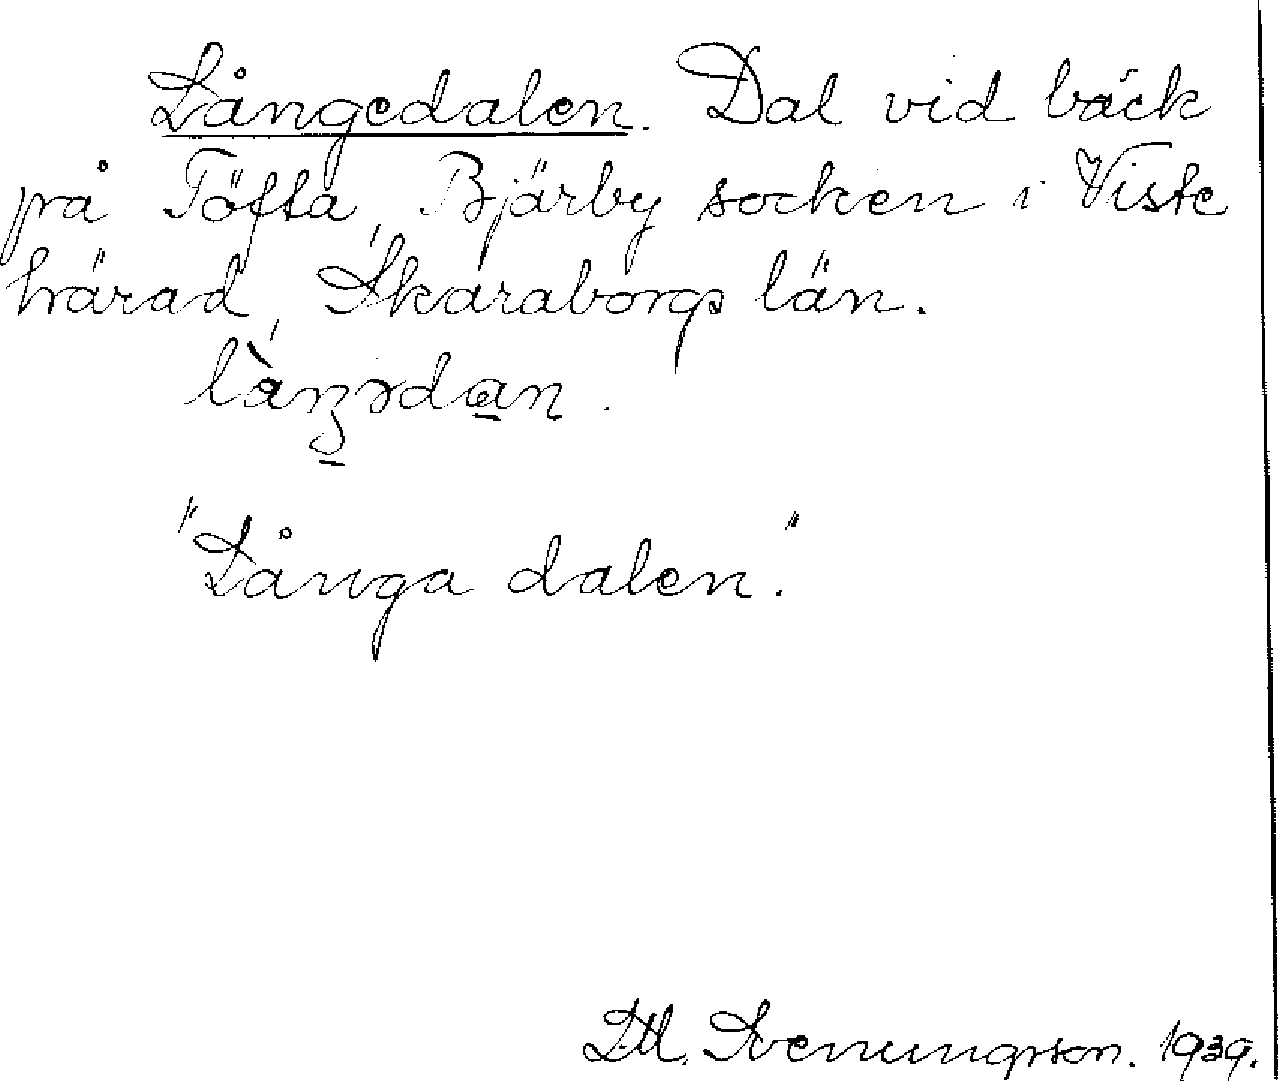 Långedalen. Dal vid bäck
på Töfta, Bjärby socken i Viste
härad, Skaraborgs län.
"Långa dalen."
Svenungsson. 1939.